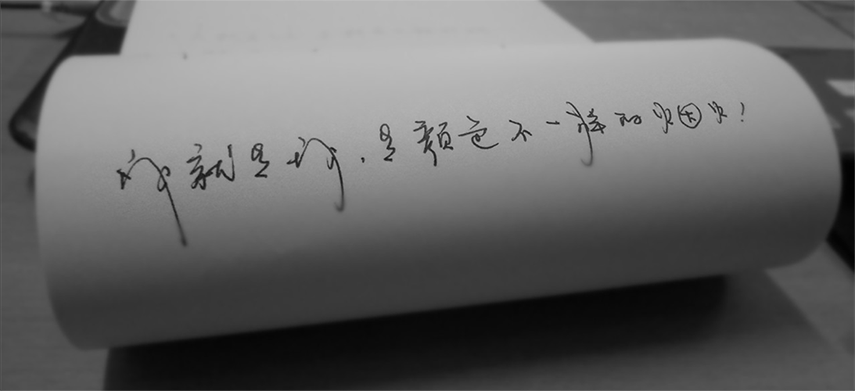 你就是你,是颜色不一样的烟火!